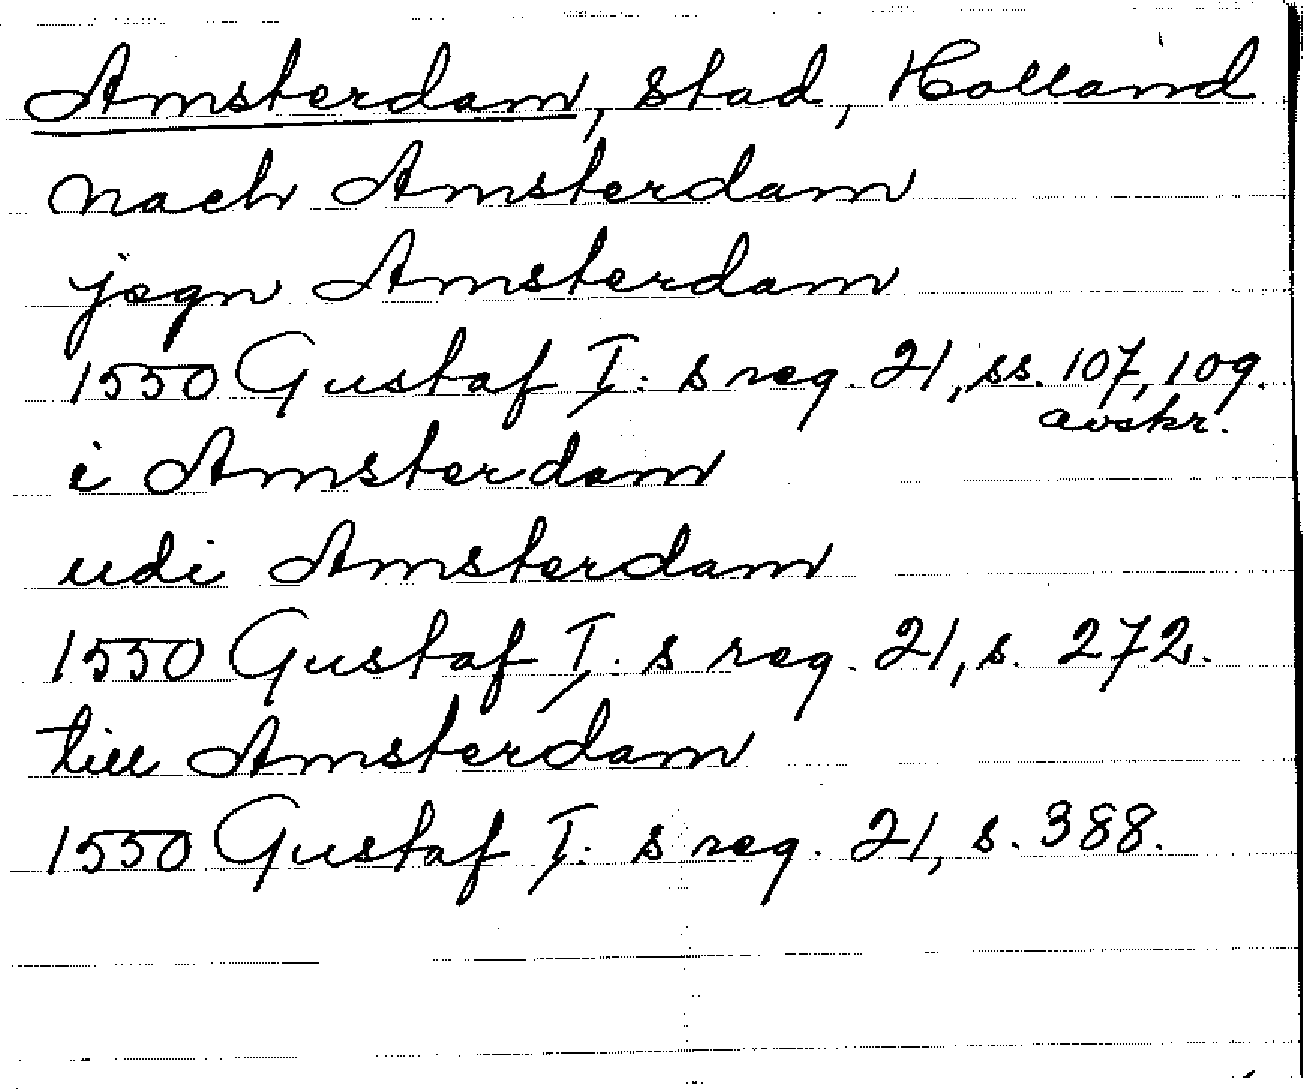 Amsterdam, stad, Holland
nach Amsterdam
jegn Amsterdam
1550 Gustaf I:s reg. 21, ss. 107, 109.
avskr.
i Amsterdam
udi Amsterdam
1550 Gustaf I:s reg. 21, s. 272.
till Amsterdam
1550 Gustaf I:s reg. 21, s. 388.